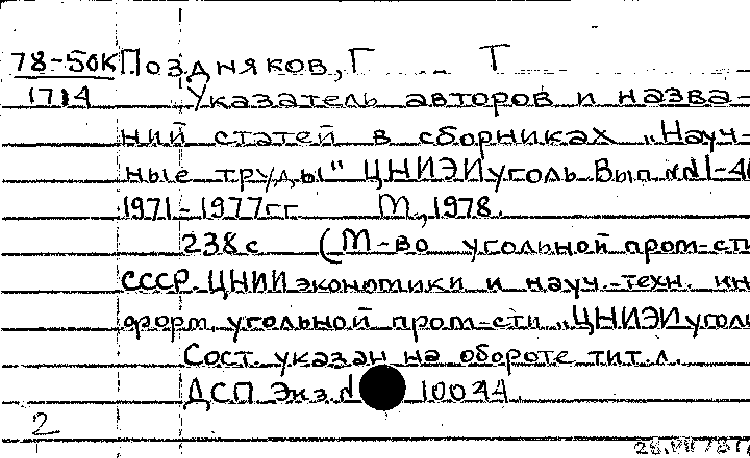 78-50К Поздняков, Г Т
1714 Указатель авторов и назва-
ний статей в сборниках „Науч-
ные труды" ЦНИЭИуголь Вып.
1971-1977гг М., 1978.
238с (М-во угольной пром-сти
СССР. ЦНИИ экономики и науч.-техн. ин
форм. угольной пром-сти „ЦНИЭИуголь
Сост. указан на обороте тит. л.
ДСП Экз. 10044
2